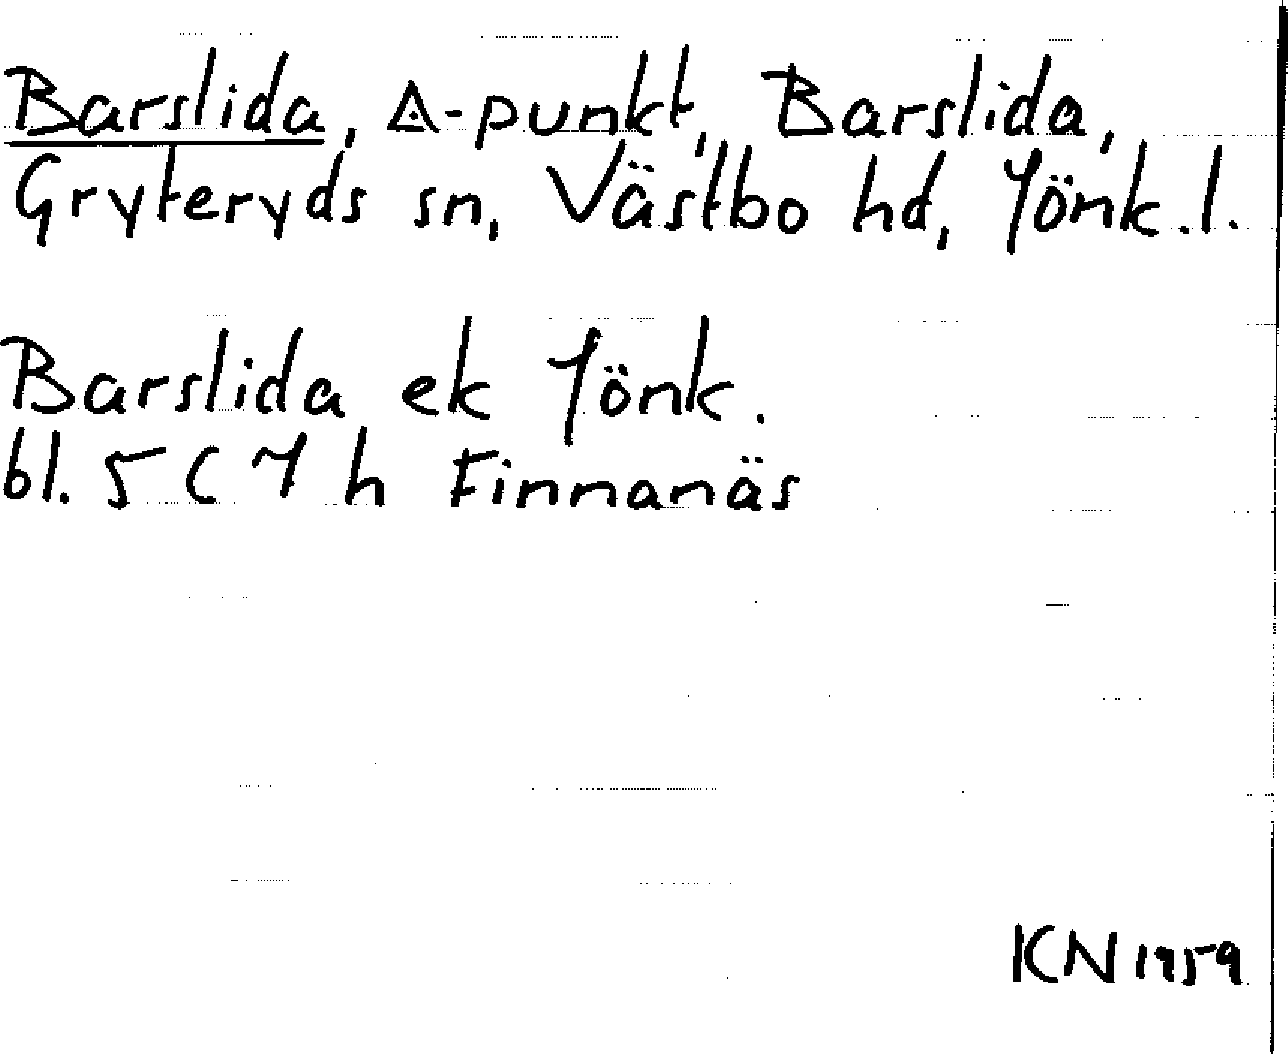 Barslida, △-punkt, Barslida,
Gryteryds sn, Västbo hd, Jönk.l.
Barslida ek Jönk.
bl. 5 C 7 h Finnanäs
KN 1959